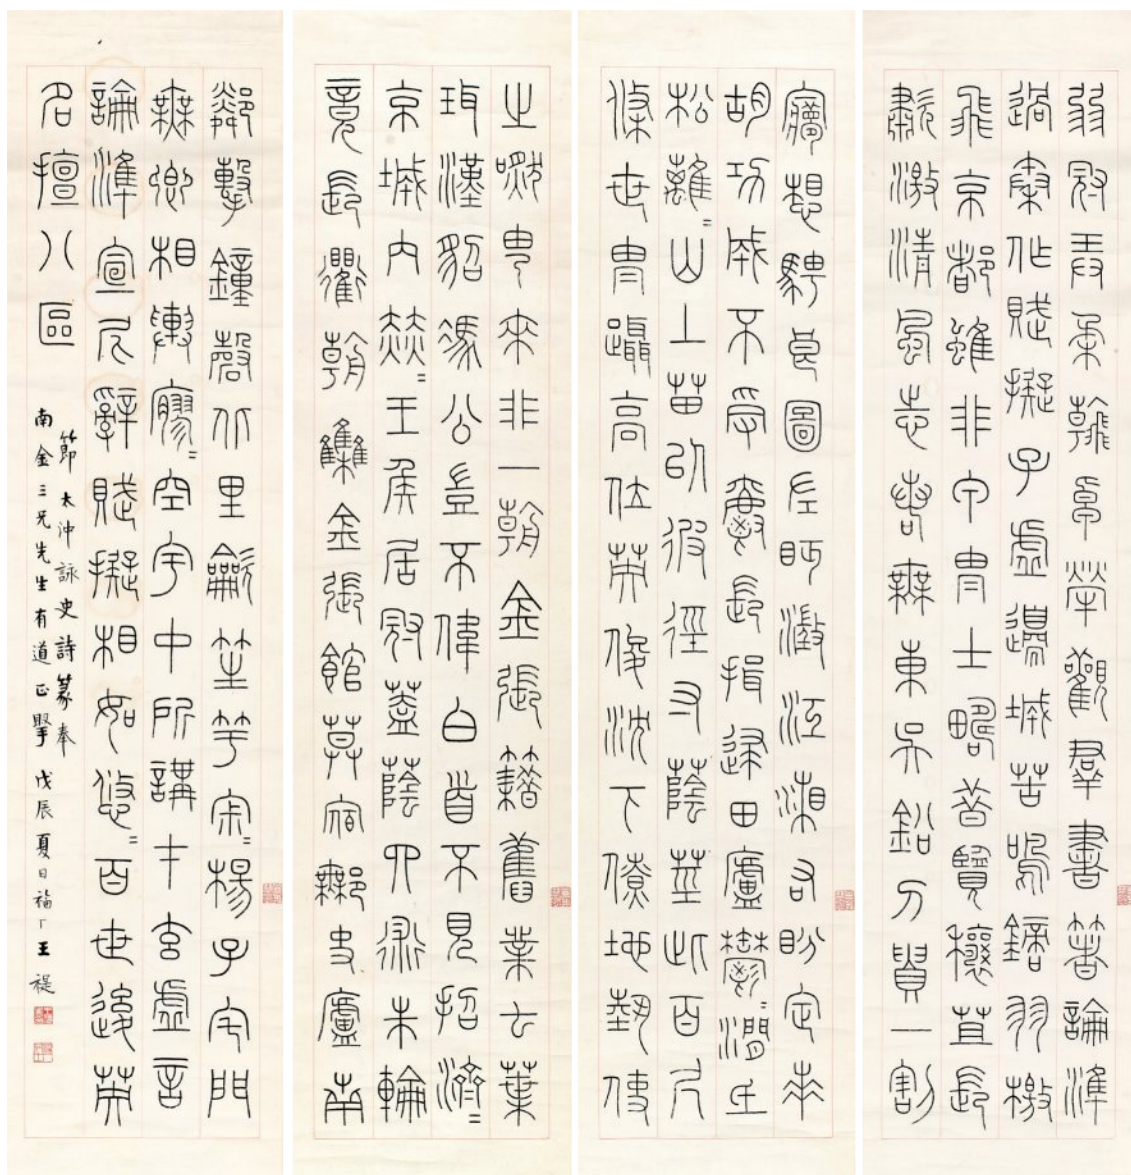 弱冠弄柔翰卓犖觀群書著論準
過秦作賦擬子虛邊城苦鳴鏑羽檄
飛京都雖非甲冑士疇昔覽穰苴長
嘯激清風志若無東吳鉛刀貴一割
夢想騁良圖左眄澂江湘右盼定羌
胡功成不受爵長揖歸田廬鬱=澗底
松離=山上苗以彼徑寸蔭莖此百尺
條世冑躡高位英俊沈下僚地勢使
之然由來非一朝金張籍舊業七葉
珥漢貂馮公豈不偉白首不見招濟=
京城內赫=王侯居冠蓋蔭四術朱輪
竟長衢朝集金張館莫宿許史廬南
鄰擊鐘磬北里吹笙竽寂=楊子宅門
無卿相輿寥=空宇中所講在玄虛言
論準宣尼辭賦擬相如悠=百世後英
名擅八區
節太沖詠史詩篆奉
南金三兄先生有道正擥 戊辰夏日福厂王禔